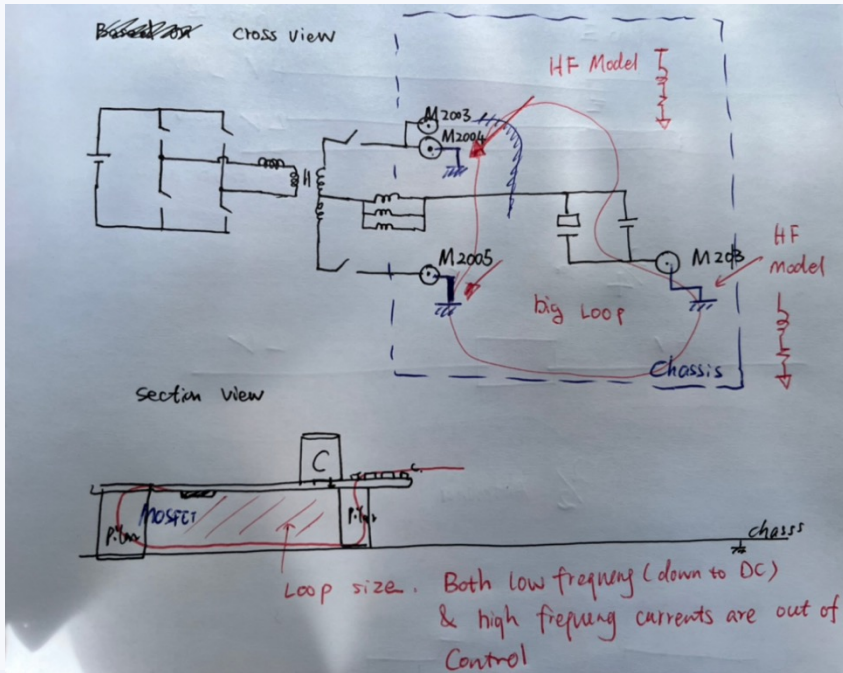 cross view
HF Model
M2003
M2004
M2005
M203
HF
model
big Loop
Chassis
section view
C
MOSFET
chasss
Loop size. Both low frequeng (down to DC)
& high frequeng currents are out of
Control